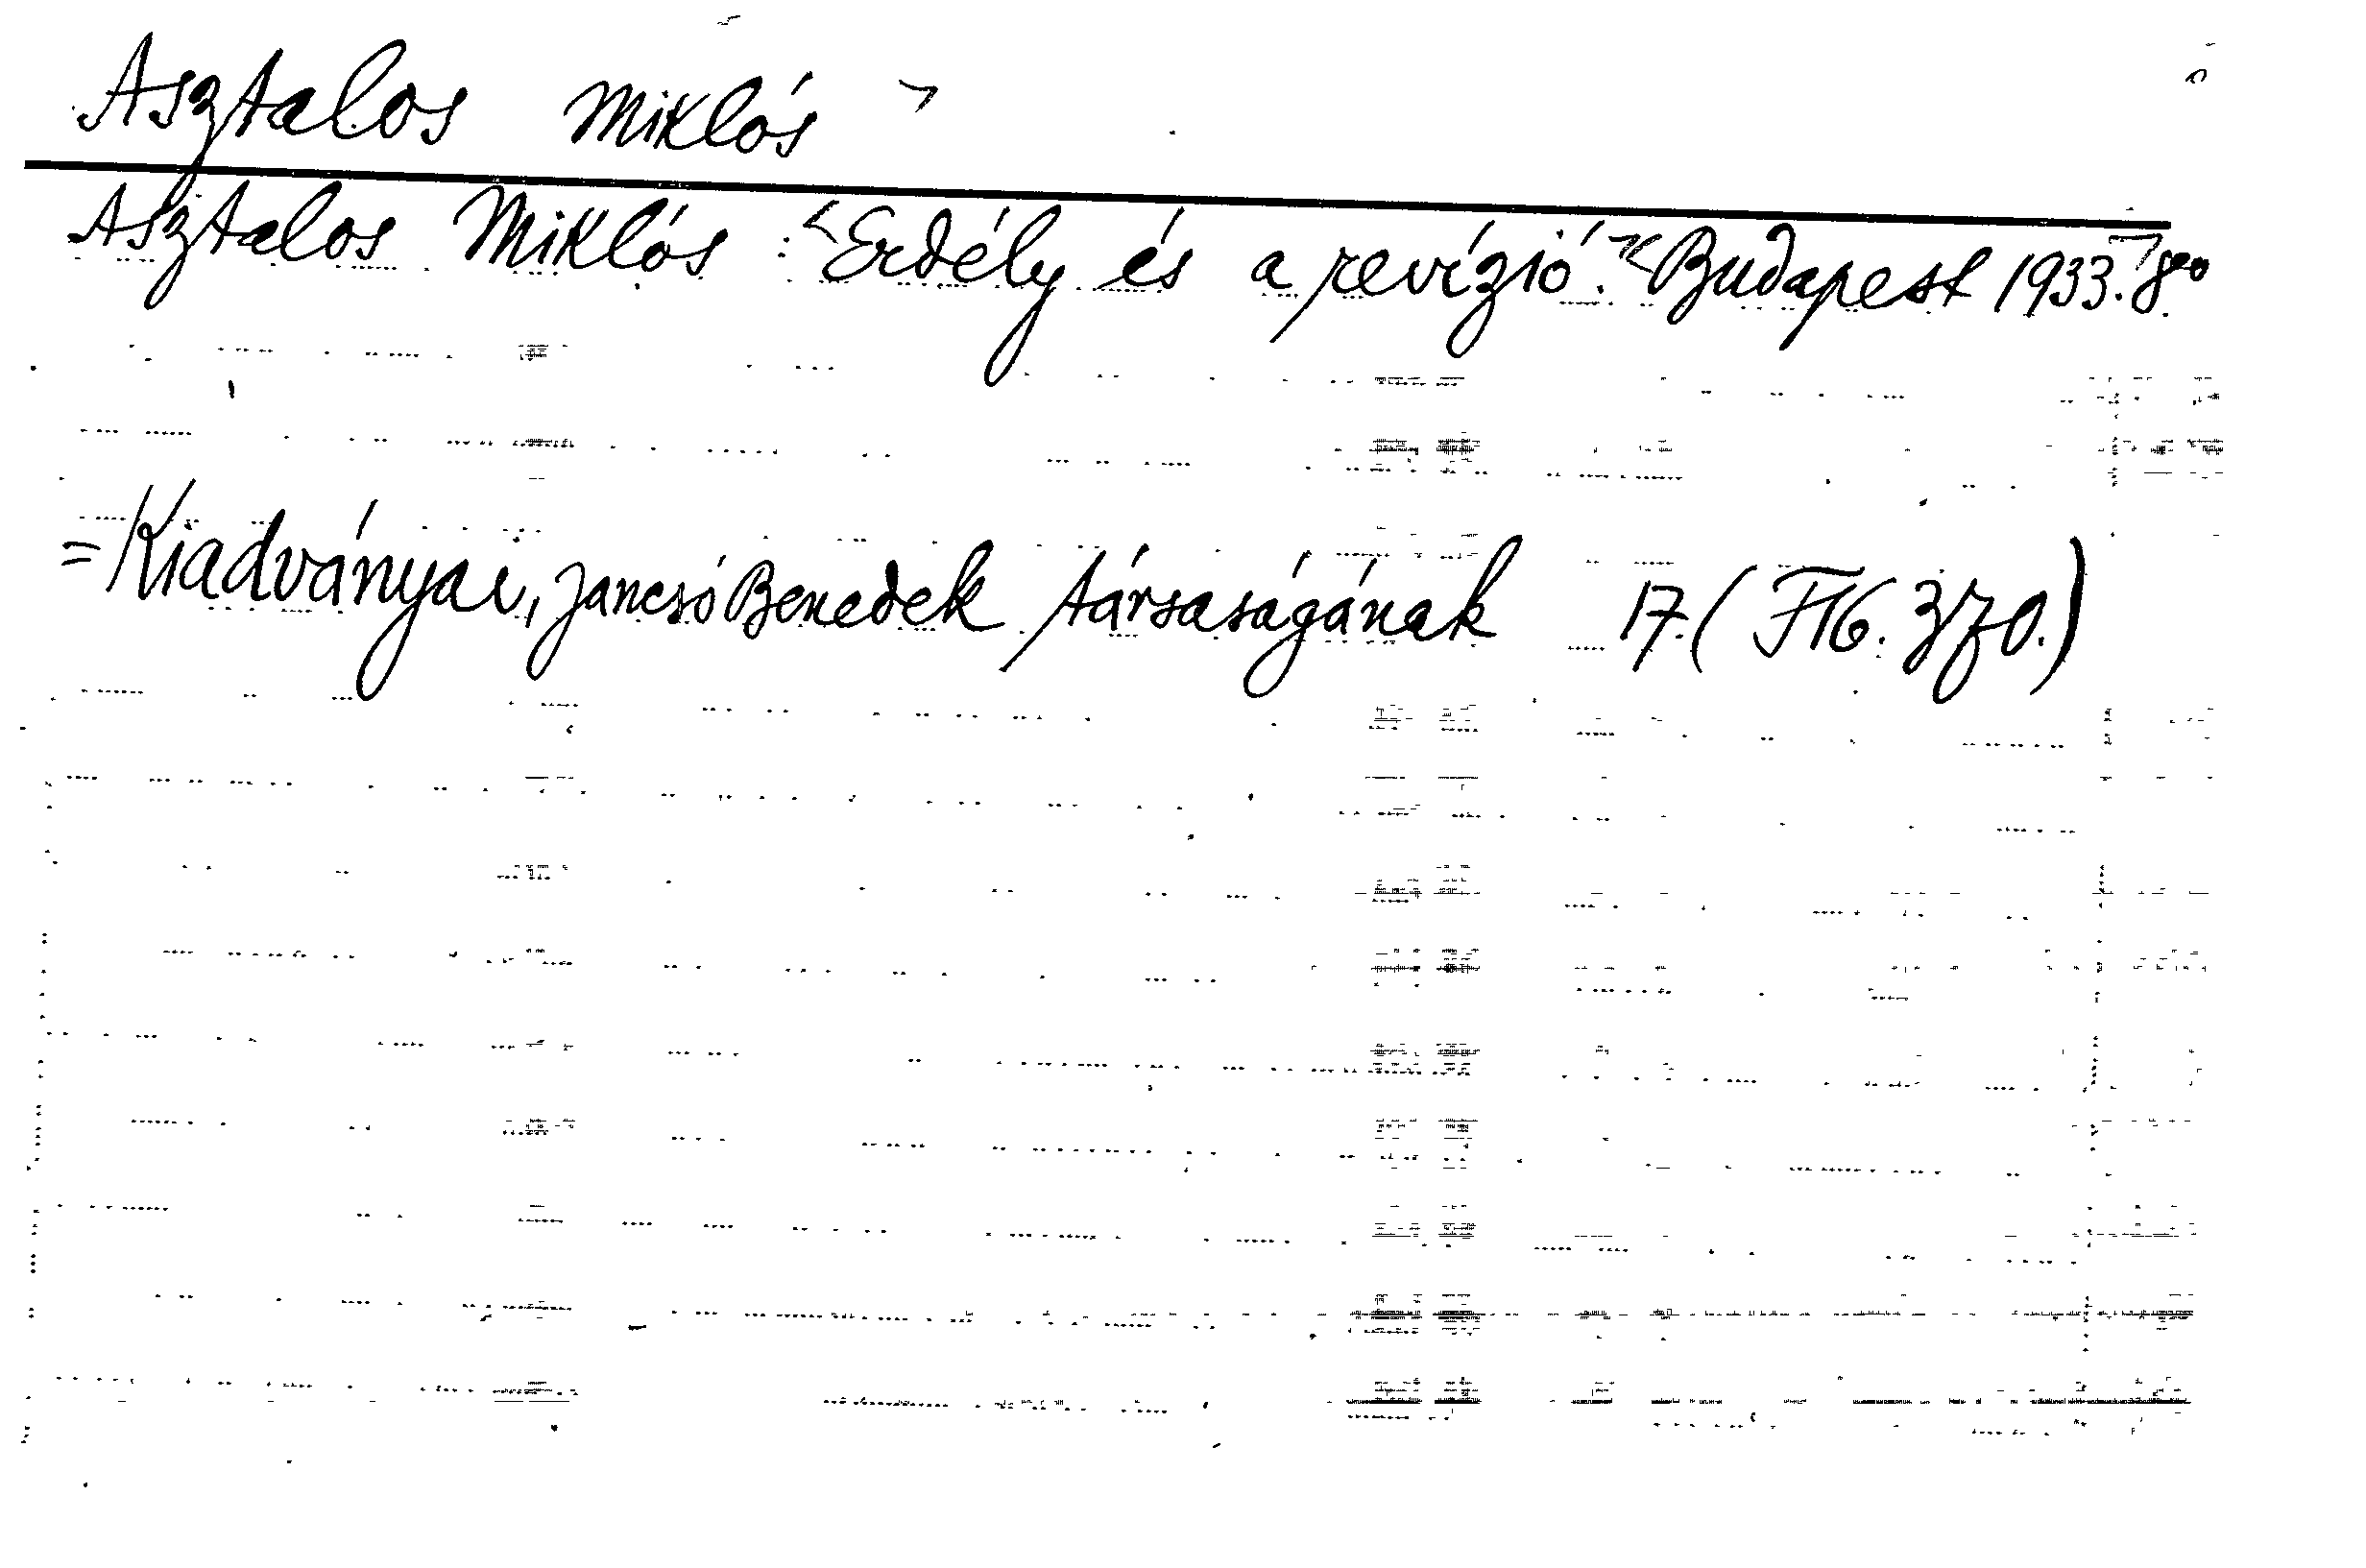 Asztalos Miklós
Asztalos Miklós: Erdély és a revízió. Budapest 1933. 8º
=Kiadványai, Jancsó Benedek társaságának 17. ( 370.)